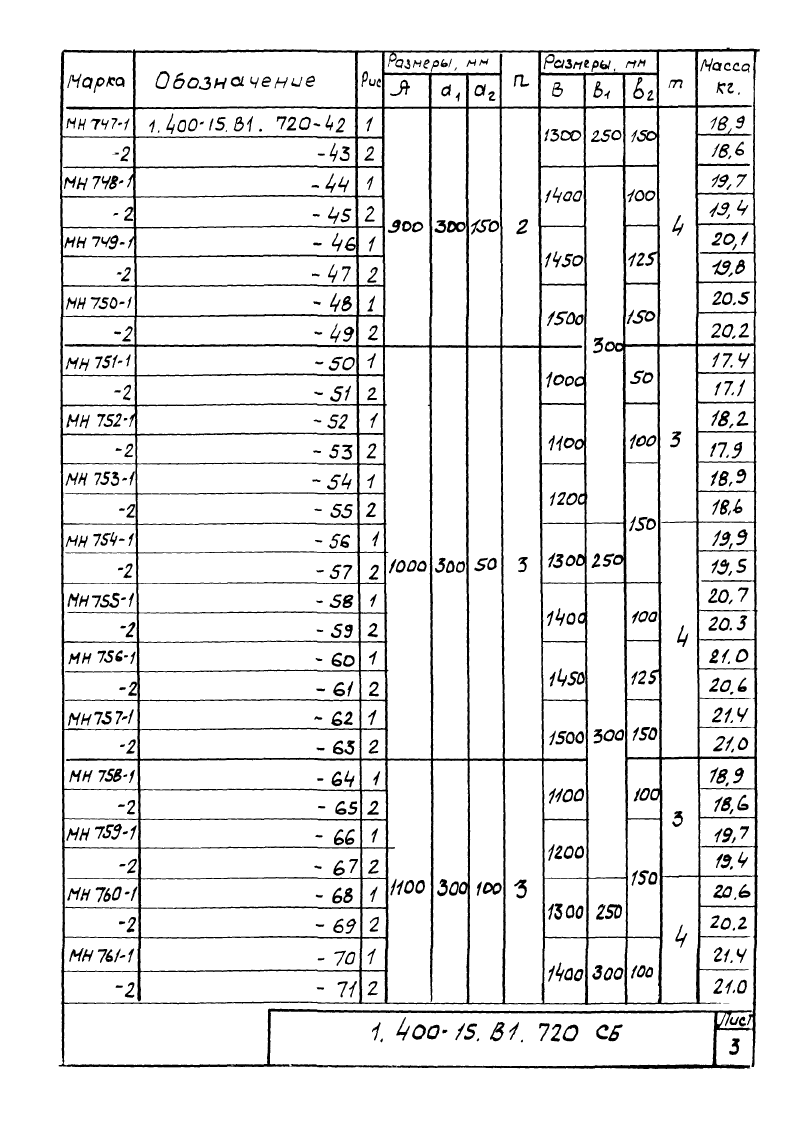 Марка Обозначение Рис Размеры, мм п Размеры, мм m Масса кг.
А а1 а2 В в1 в2
МН 747-1 1.400-15.В1. 720-42 1 900 300 150 2 1300 250 150 4 18,9
-2 -43 2 18,6
МН 748-1 -44 1 1400 300 100 19,7
-2 -45 2 19,4
МН 749-1 -46 1 1450 125 20,1
-2 -47 2 19,8
МН 750-1 -48 1 1500 150 20.5
-2 -49 2 20.2
МН 751-1 -50 1 1000 300 50 3 1000 50 3 17.4
-2 -51 2 17.1
МН 752-1 -52 1 1100 100 18,2
-2 -53 2 17.9
МН 753-1 -54 1 1200 150 18,9
-2 -55 2 18,6
МН 754-1 -56 1 1300 250 4 19,9
-2 -57 2 19,5
МН 755-1 -58 1 1400 300 100 20,7
-2 -59 2 20.3
МН 756-1 -60 1 1450 125 21.0
-2 -61 2 20,6
МН 757-1 -62 1 1500 150 21.4
-2 -63 2 21,0
МН 758-1 -64 1 1100 300 100 3 1100 100 3 18,9
-2 -65 2 18,6
МН 759-1 -66 1 1200 150 19,7
-2 -67 2 19.4
МН 760-1 -68 1 1300 250 4 20.6
-2 -69 2 20.2
МН 761-1 -70 1 1400 300 100 21.4
-2 -71 2 21.0
1.400-15.В1.720 СБ
Лист
3